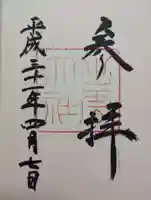 参拝
平成二十一年四月七日